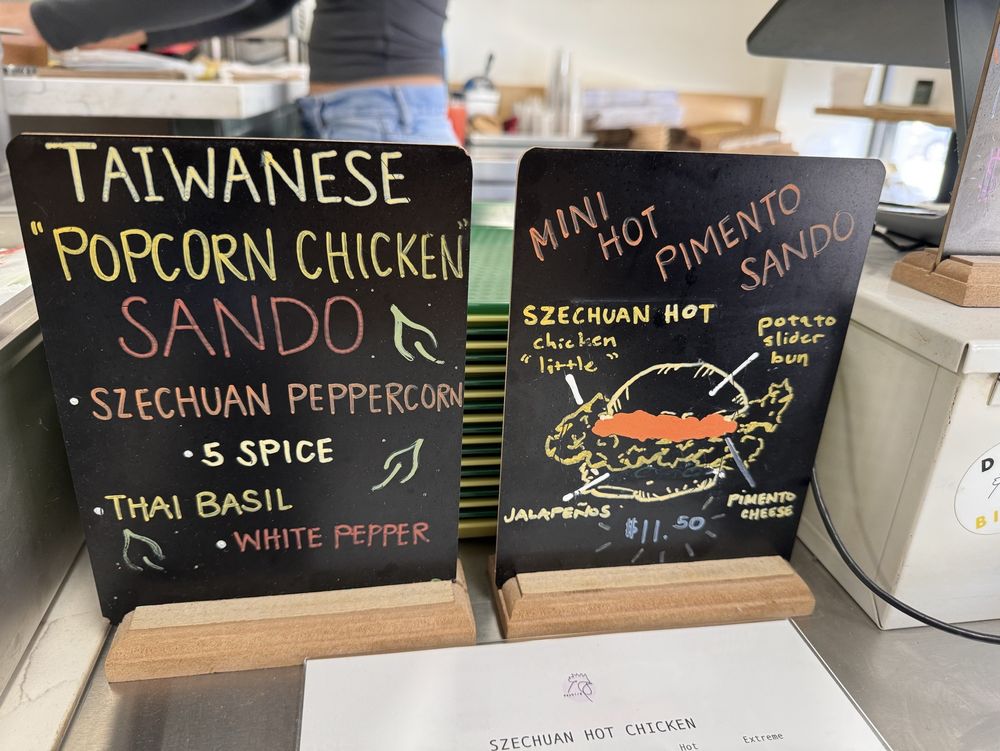 TAIWANESE
"POPCORN CHICKEN"
SANDO
• SZECHUAN PEPPERCORN
• 5 SPICE
• THAI BASIL
• WHITE PEPPER
MINI HOT PIMENTO SANDO
SZECHUAN HOT
chicken
"little"
potato
slider
bun
JALAPEÑOS
PIMENTO
CHEESE
$11.50
SZECHUAN HOT CHICKEN
Hot Extreme